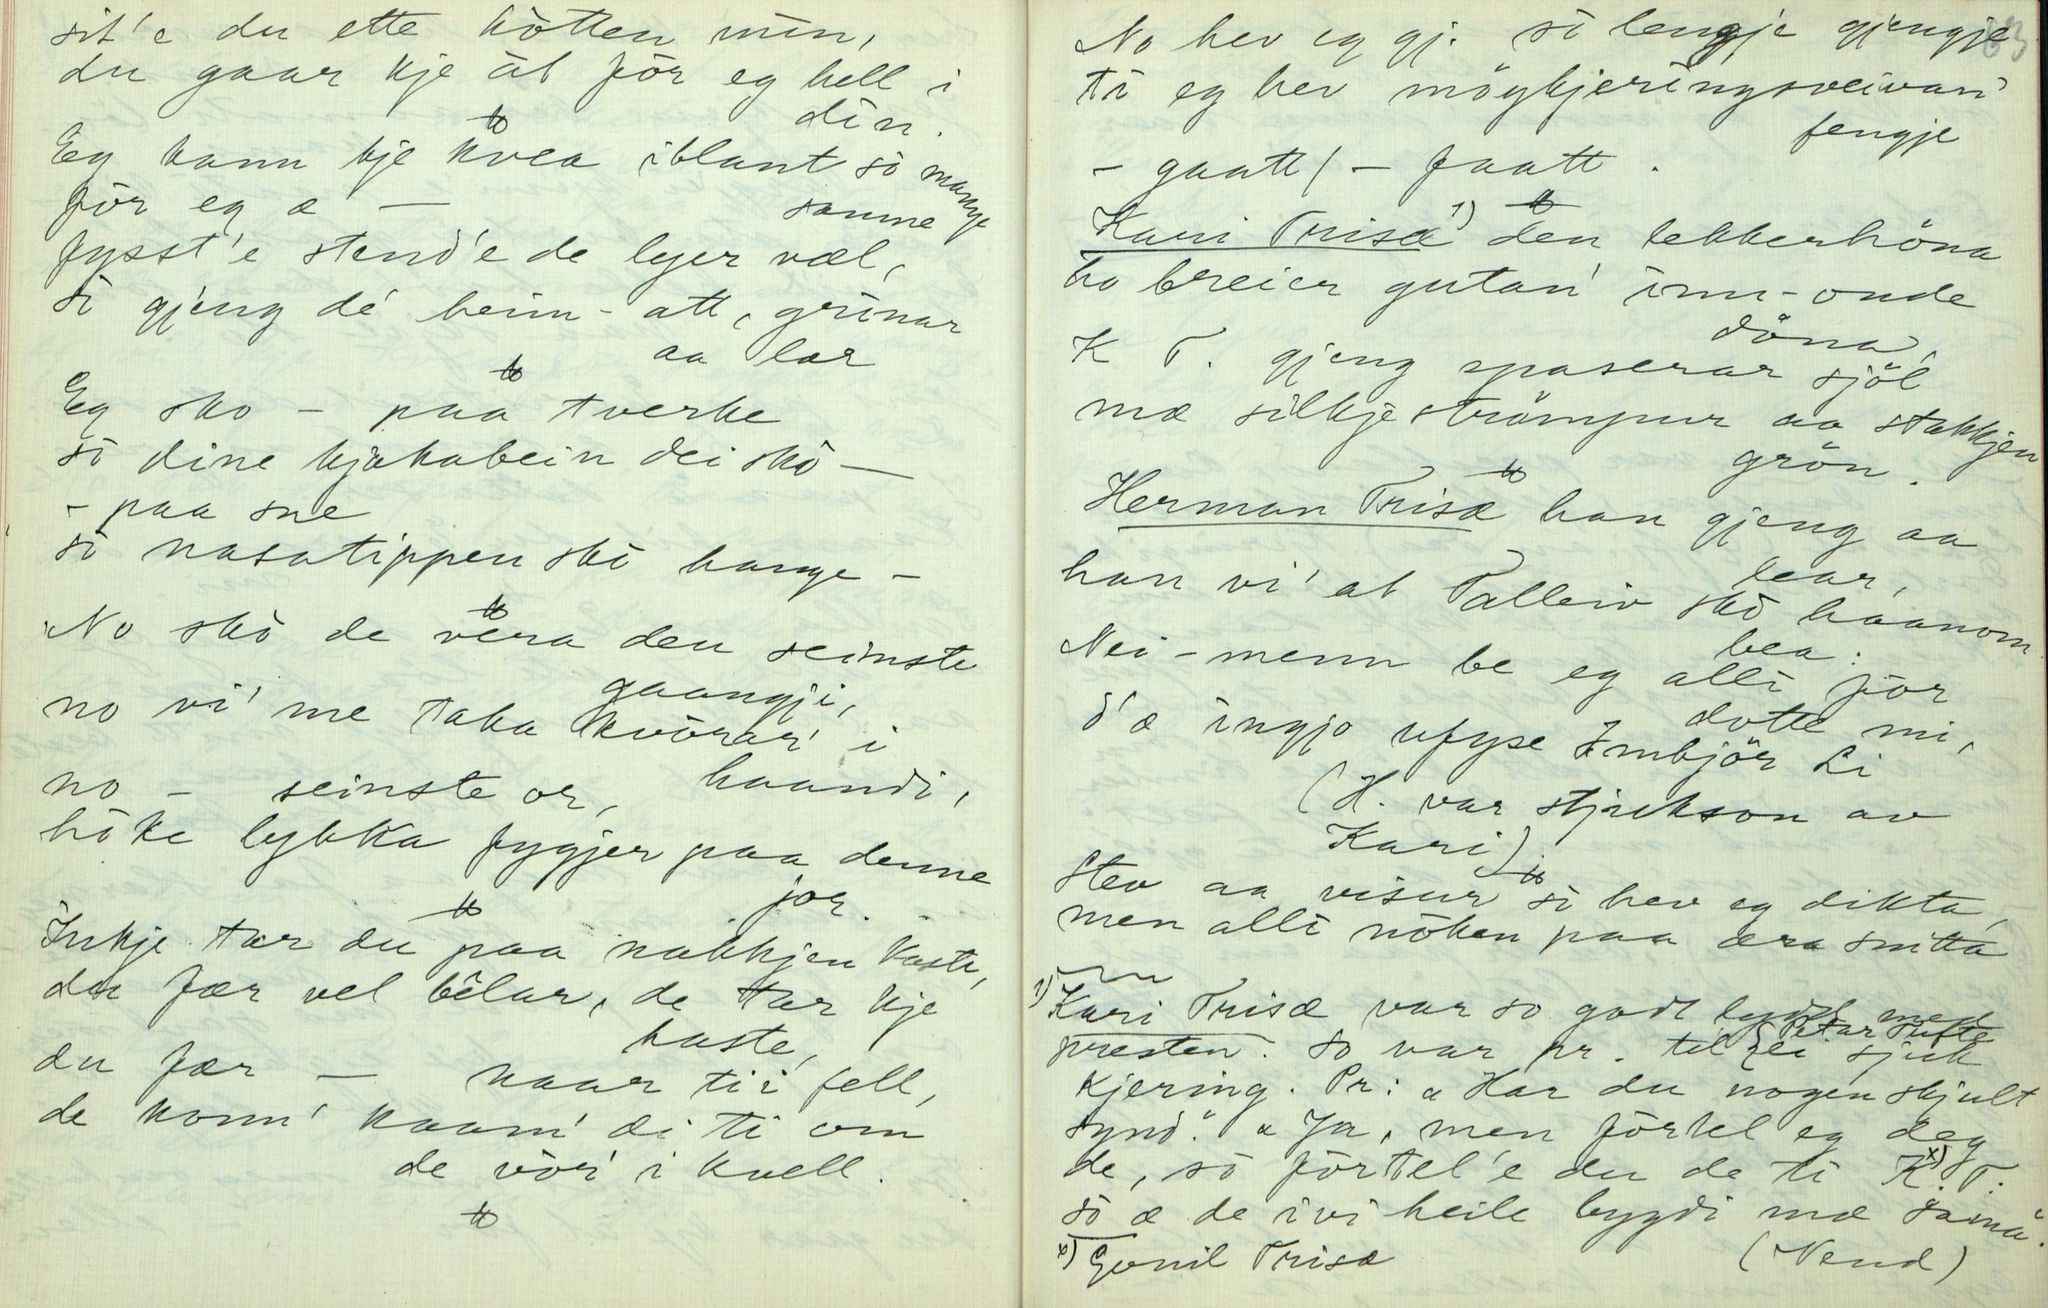 sit'e du ette kòtten min,
du gaar kje åt för eg hell i
din.
Eg kann kje kvea iblant sò mange
för eg æ — sanne
fysst'e stend'e de lyer væl,
sì gjeng dé heim-att, grinar
aa lær
Eg sko - paa tverke
sò dine kjakabein dei skò —
- paa sne
sò nasatippen skò hange -
No skò de vera den seinste
gaangji,
no vi' me taka kvörar' i
haandi,
no - seinste or,
hòke lykka fygjer paa denne
jor.
Inkje tar du paa nakkjen kaste,
du fær vel bêlar, de tar kje
haste,
du fær — naar tii fell,
de komm' kaam' di ti om
de vòr' i kvell.
No hev eg gj. sò lengje gjengje
63
ti eg hev möykjeringsveivari
fengje
- gaatt / - faatt.
Kari Trisæ 1) den lekkerhöna
ho breier gutan' inn-onde
döna,
K T. gjeng spaserar sjöl
mæ silkjeströmpur aa stakkjen
grön.
Herman Trisæ han gjeng aa
lear,
han vi' at Talleiv skò haanom
bea:
Nei-menn be eg alli för
dotte mi,
d'æ ingjo ufyse Imbjör Li
(H. var stjukson av
Kari)
Stev aa visur sò hev eg dikta,
men alli nòken paa æra snikta
1) Kari Trisæ var so godt lydt med
presten. So var pr. til ei sjuk
Petar Tufte
kjering. Pr: "Har du nogen skjult
synd." "Ja, men förtel eg deg
de, sò förtel'e du de ti K. x) T.
sò æ de ivi heile bygdi mæ sama".
x) Gonil Trisæ (Nend)